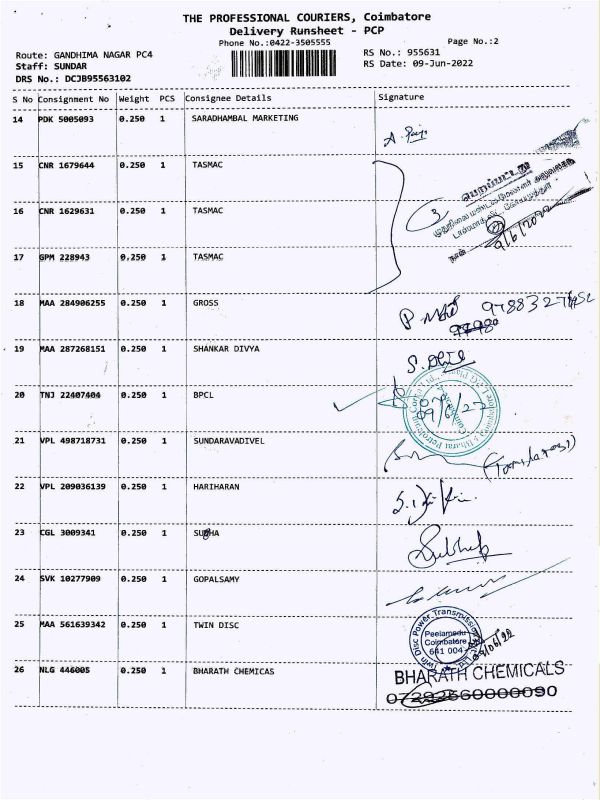 THE PROFESSIONAL COURIERS, Coimbatore
Delivery Runsheet - PCP
Phone No.:0422-3505555
Page No.:2
Route: GANDHIMA NAGAR PC4
RS No.: 955631
Staff: SUNDAR
RS Date: 09-Jun-2022
DRS No.: DCJB95563102
S No Consignment No Weight PCS Consignee Details Signature
14 PDK 5005093 0.250 1 SARADHAMBAL MARKETING
15 CNR 1679644 0.250 1 TASMAC
பெறப்பட்டது
16 CNR 1629631 0.250 1 TASMAC
நாள் 9/6/2022
17 GPM 228943 0.250 1 TASMAC
18 MAA 284906255 0.250 1 GROSS
19 MAA 287268151 0.250 1 SHANKAR DIVYA
20 TNJ 22407404 0.250 1 BPCL
09/6/22
21 VPL 498718731 0.250 1 SUNDARAVADIVEL
22 VPL 209036139 0.250 1 HARIHARAN
23 CGL 3009341 0.250 1 SUBHA
24 SVK 10277909 0.250 1 GOPALSAMY
25 MAA 561639342 0.250 1 TWIN DISC
Twin Disc Power Transmission
Peelamedu
Coimbatore
641 004
09/06/22
26 NLG 446005 0.250 1 BHARATH CHEMICAS
BHARATH CHEMICALS